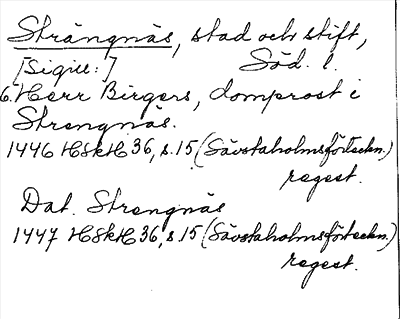 Strängnäs, stad och stift,
[Sigill:] Söd. l.
6. Herr Birgers, domprost i
Strengnäs.
1446 HSkH 36, s. 15 (Sävstaholmsförteckn.)
regest.
Dat. Strengnäs
1447 HSkH 36, s. 15 (Sävstaholmsförteckn.)
regest.